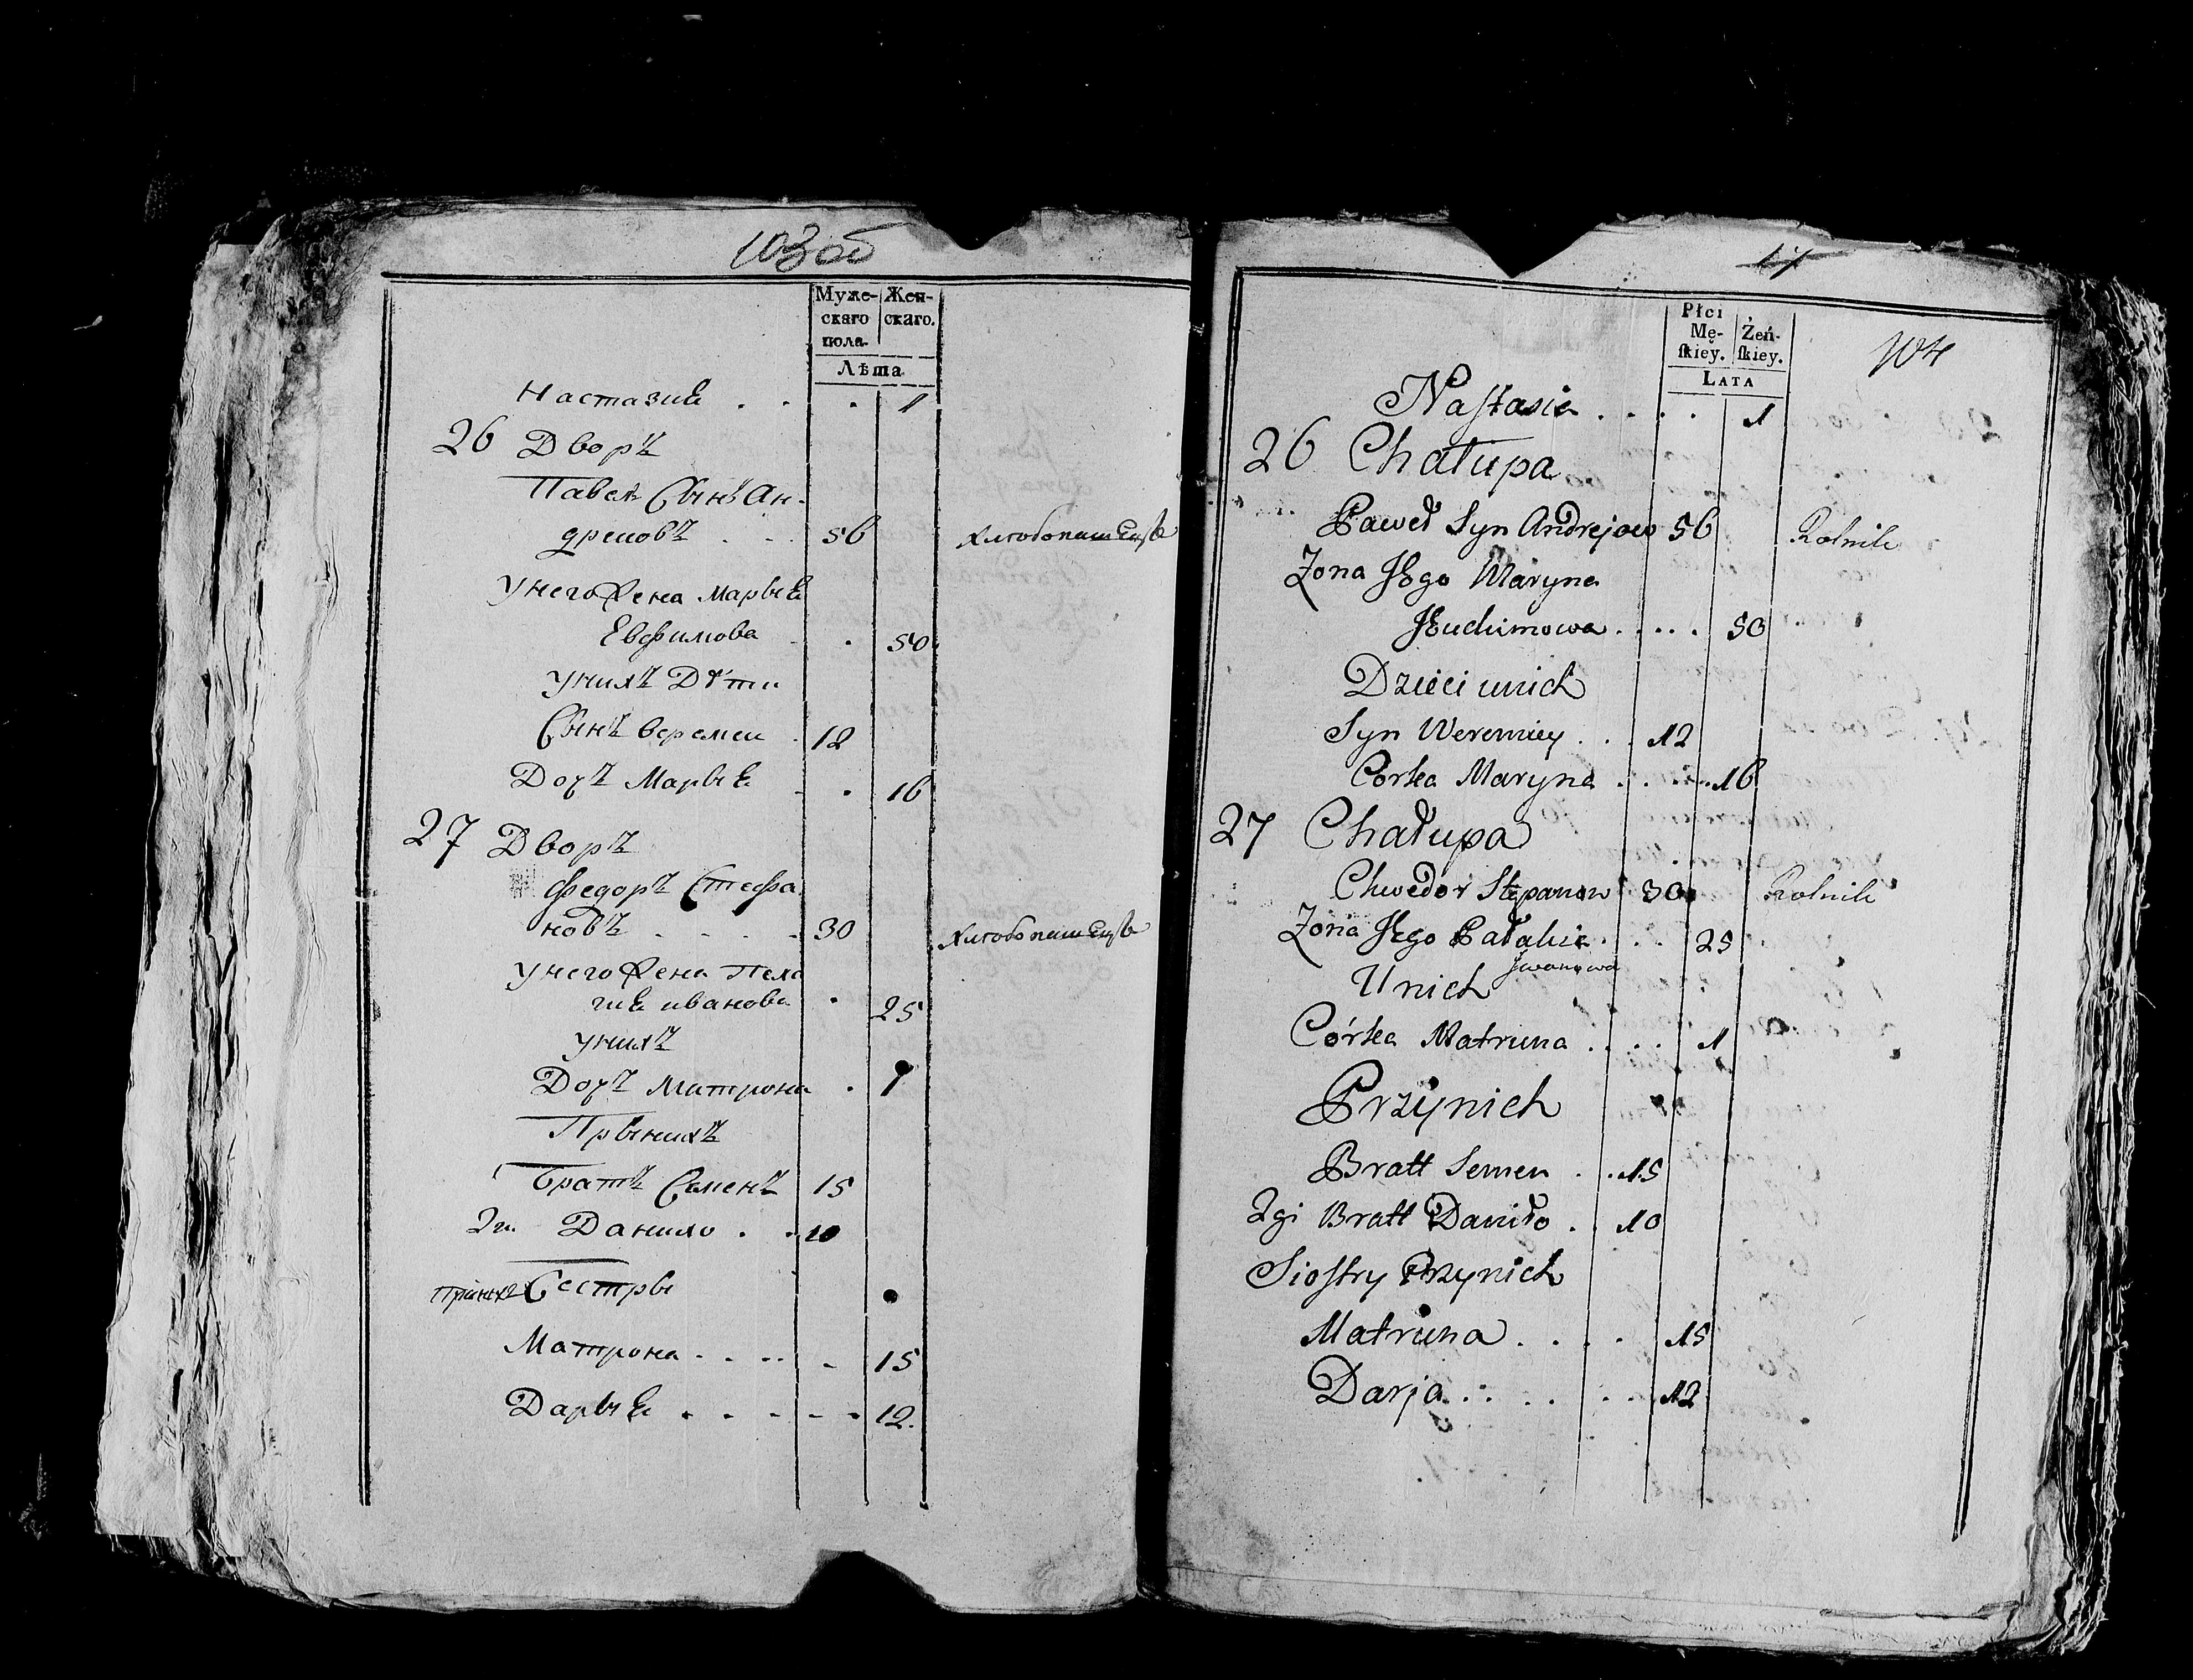 103об
Муже- Жен-
скаго скаго.
пола.
Лѣта
Настазия . . . 1
26 Дворъ
Павел Сынъ Ан-
дреиовъ . . . 56 хлѣбопашецъ
Унего жена Марыя
Евфимова . . 50
Унихъ Дѣти
Сынъ веремеи . 12
Дочъ Марыя . . 16
27 Дворъ
Федоръ Стефа
новъ . . . . 30 хлѣбопашецъ
Унего жена Пела
гия иванова . 25
Унихъ
Дочъ Матрона . 1
Прыниxъ
Братъ Семенъ 15
2и Данило . . 10
Сестры
Матрона . . . . . 15
Дарыя . . . . . . 12.
17
104
Płci
Mę- Żeń-
ſkiey. ſkiey.
LATA
Naſtasia . . . . 1
26 Chałupa
Paweł Syn Andrejow 56 Rolnik
Zona JEgo Maryna
JEuchimowa . . . . 50
Dzieci unich
Syn Weremiey . . . 12
Corka Maryna . . . . 16
27 Chałupa
Chwedor Stepanow 30 Rolnik
Zona JEgo Pałahia . . . 25
Jwanowa
Unich
Córka Matruna . . . . 1
Przynich
Bratt Semen . . 15
2gi Bratt Daniło . . 10
Sioſtry Przynich
Matruna . . . . 15
Darja . . . . . . 12